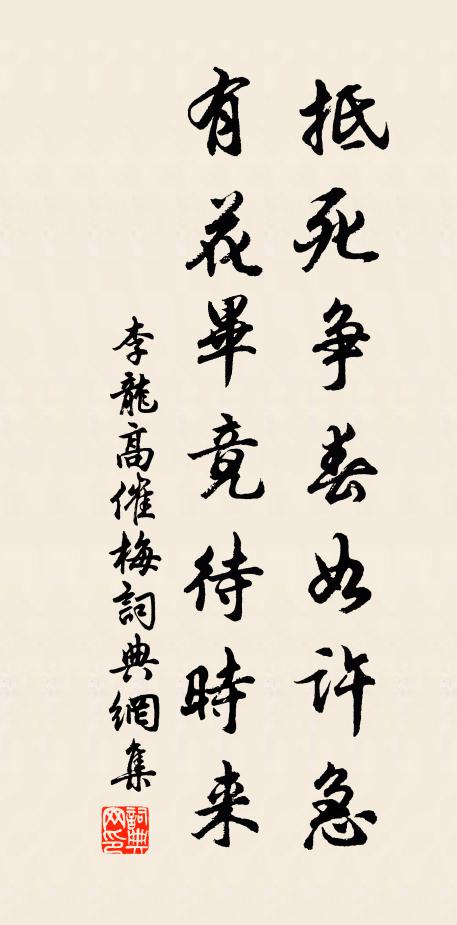 抵死争春如許急
有花畢竟待時来
李龍高催梅詞典網集
詞典网印